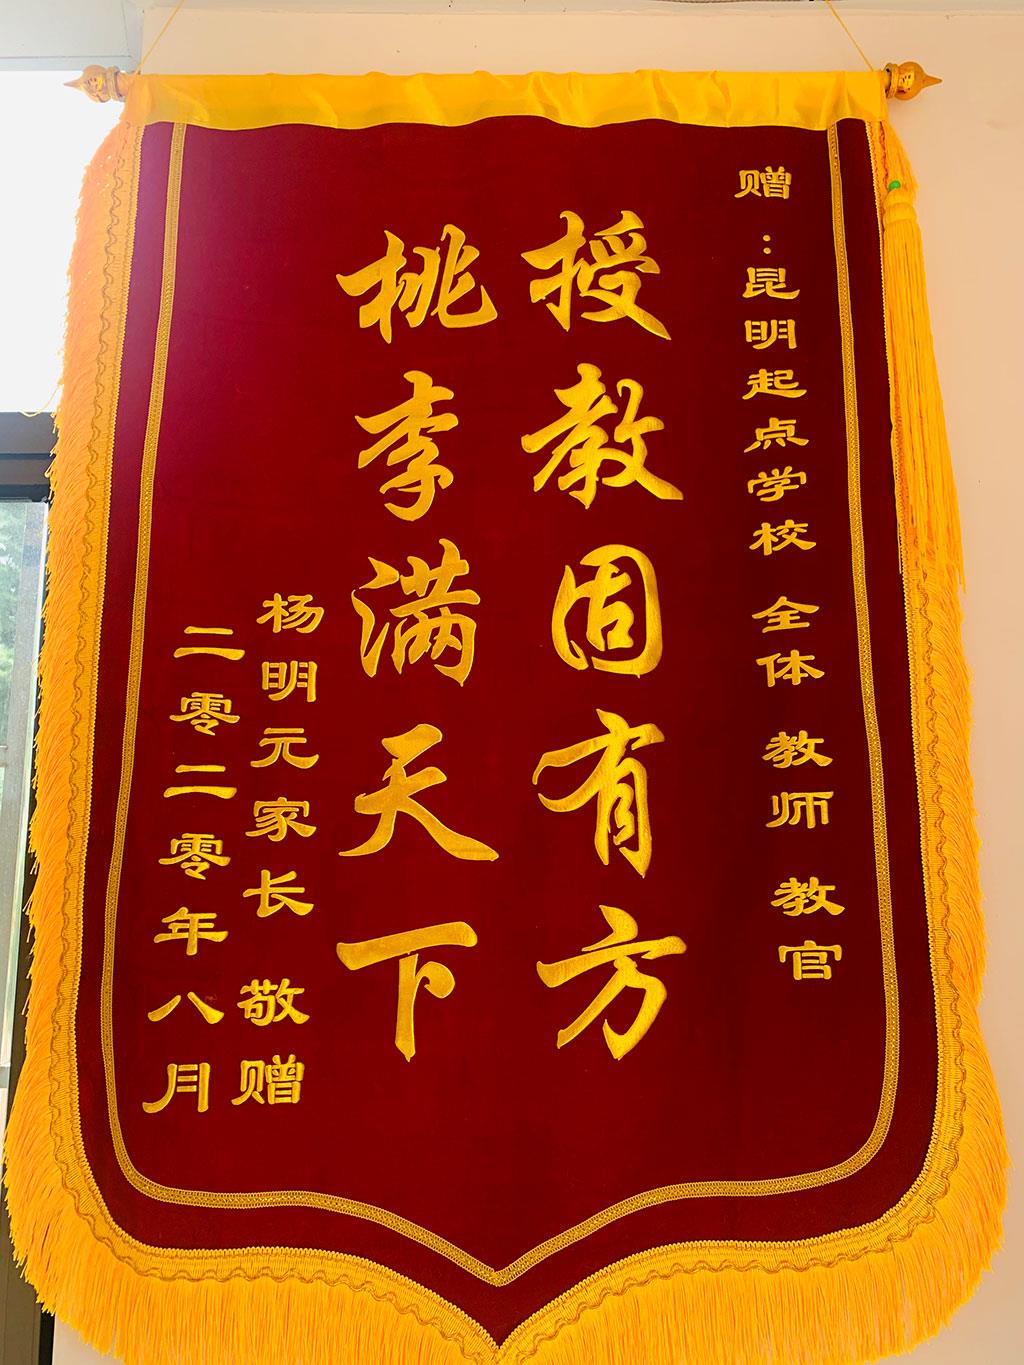 赠：昆明起点学校 全体 教师 教官
授教固有方
桃李满天下
杨明元家长 敬赠
二零二零年八月